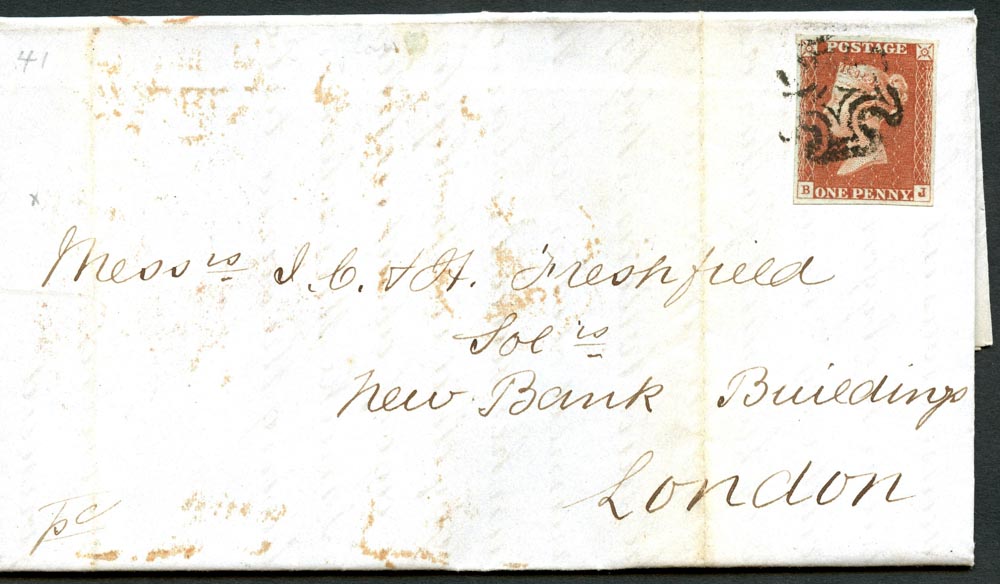 41
POSTAGE
B J
ONE PENNY.
x
Mess rs J. C. & H. Freshfield
Sol rs
New Bank Buildings
London
pc